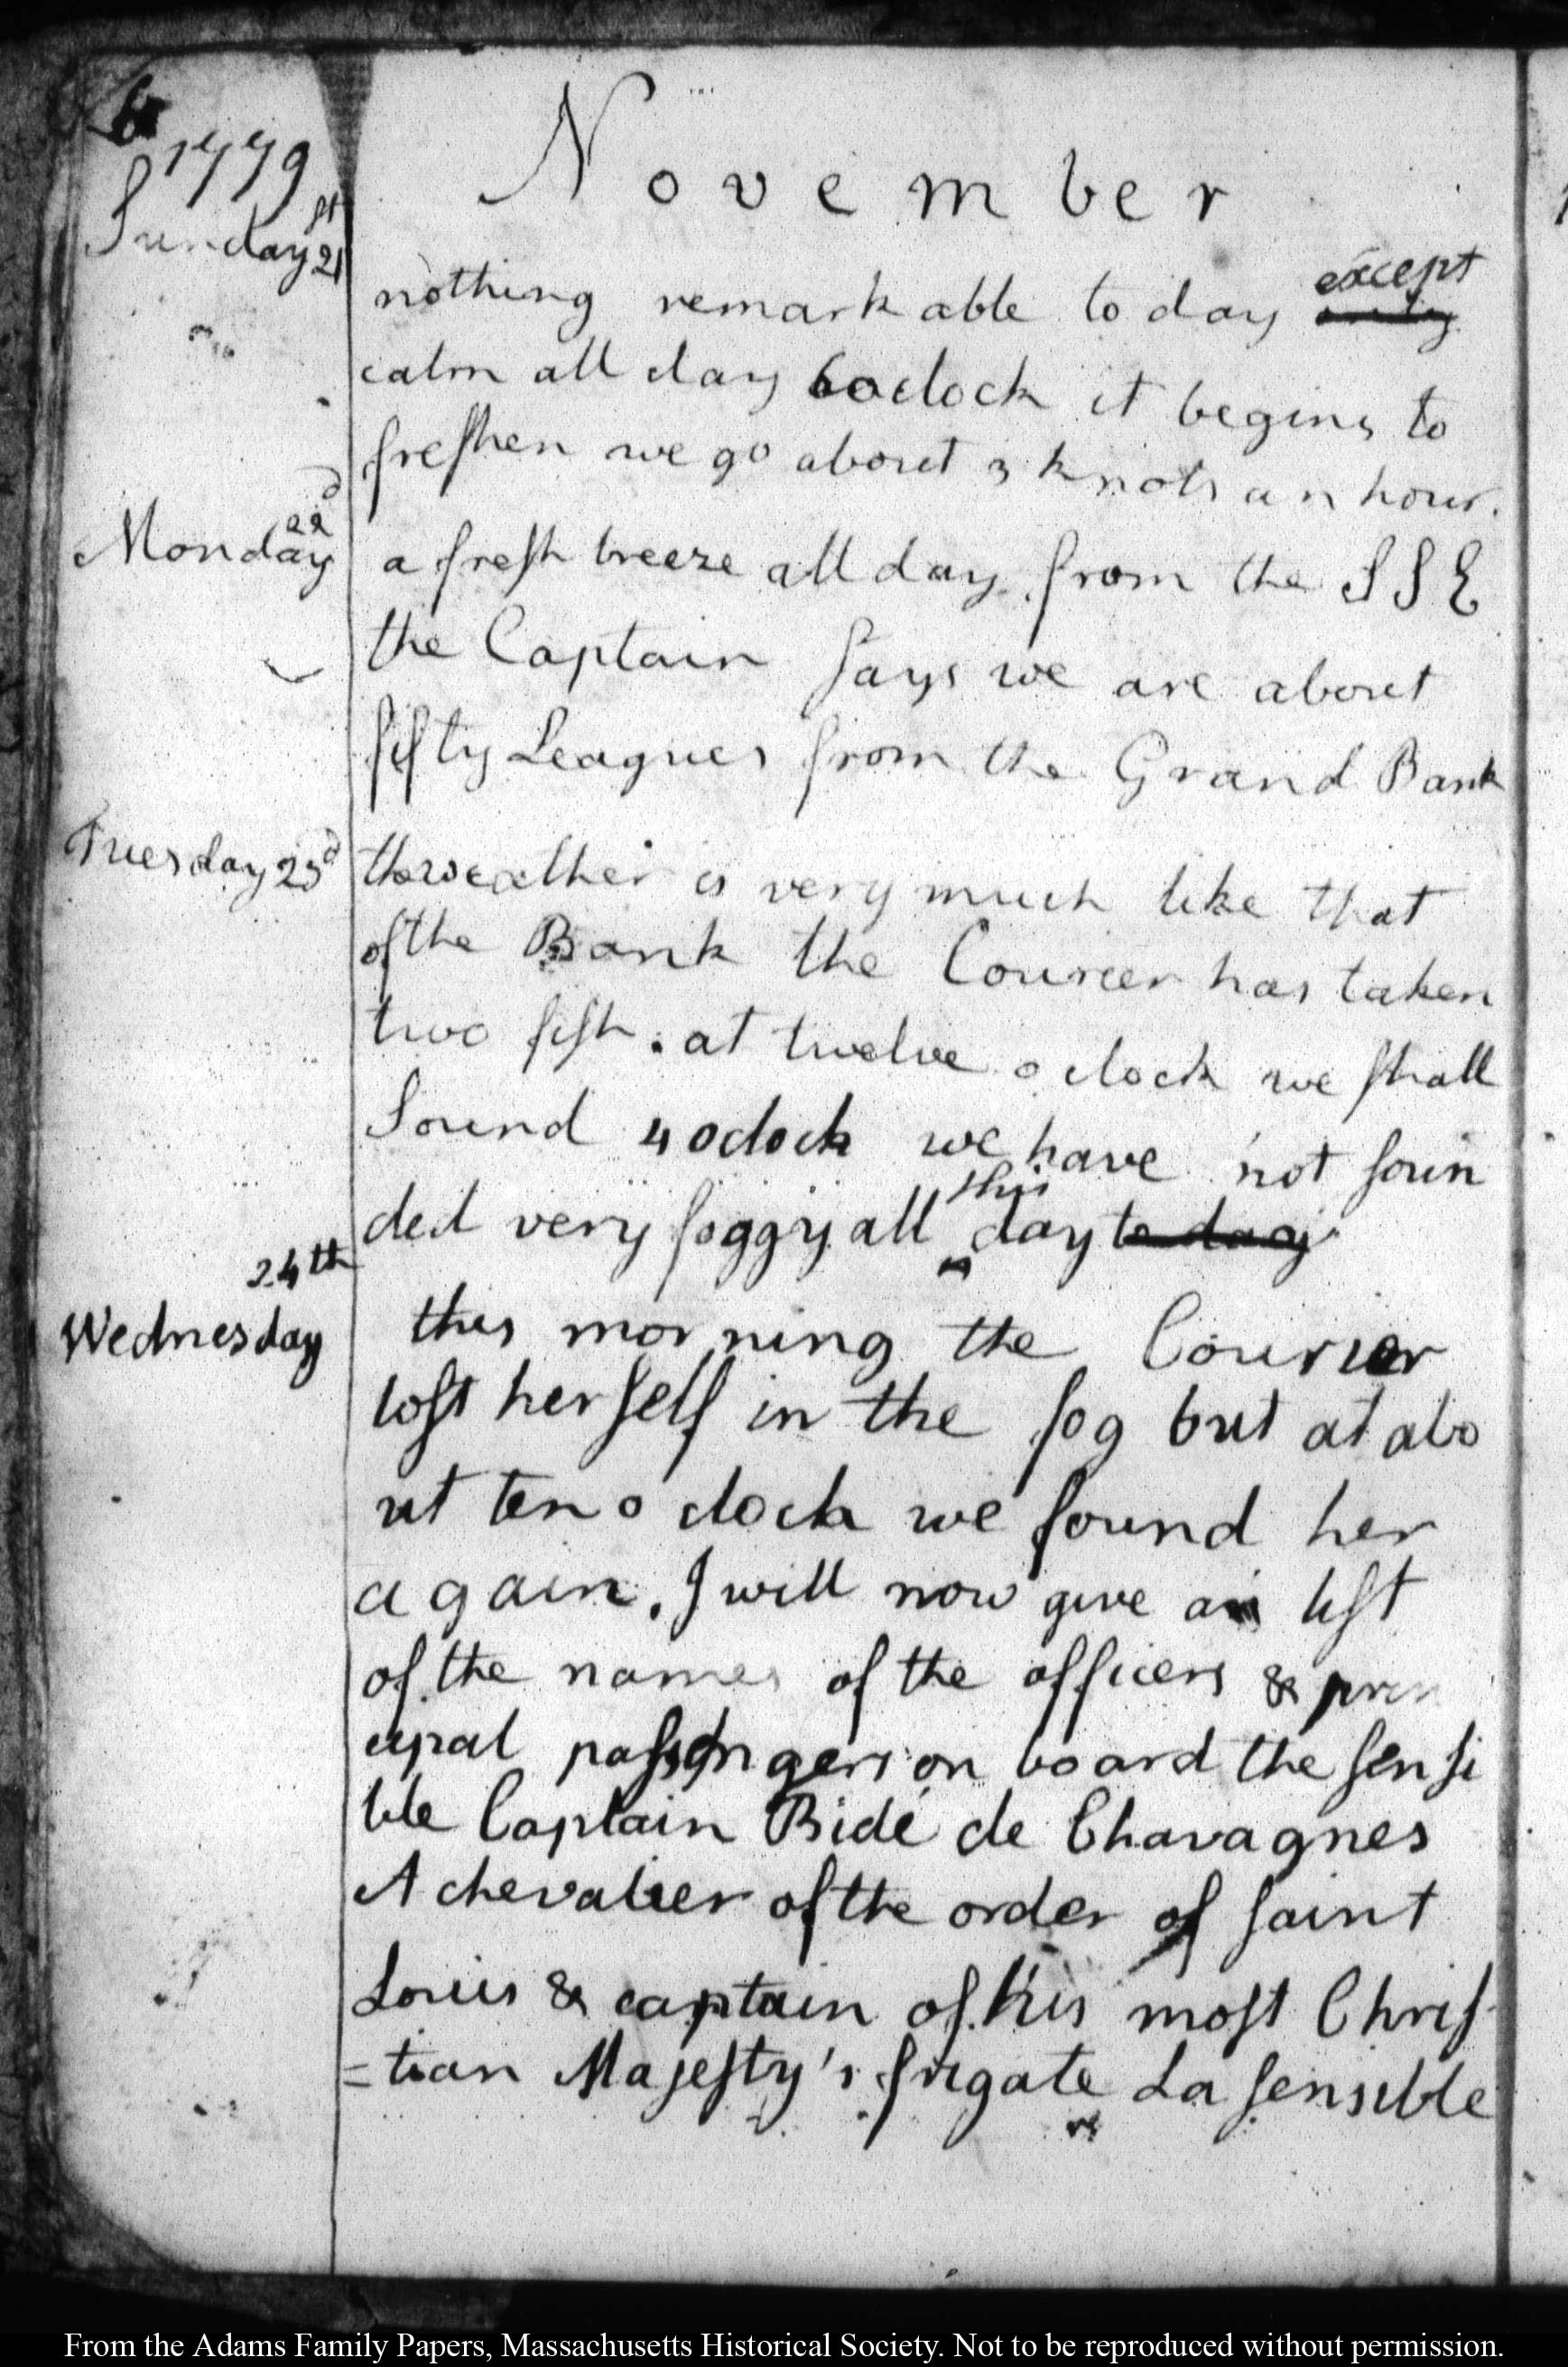 6
1779
November
Sunday 21st
nothing remarkable to day only except
calm all day 6 oclock it begins to
freshen we go about 3 knots an hour.
Monday 22d
a fresh breeze all day from the S S E
the Captain says we are about
fifty Leagues from the Grand Bank
Tuesday 23d
the weather is very much like that
of the Bank the Courier has taken
two fish. at twelve o clock we shall
Sound 4 oclock we have not soun
ded very foggy all this day to day
24th
Wednesday
this morning the Courier
lost herself in the fog but at abo
ut ten o clock we found her
again. I will now give a list
of the names of the officers & prin
cipal passengers on board the sensi
ble Captain Bidé de Chavagnes
A chevalier of the order of saint
Louis & captain of his most Chris-
=tian Majesty's frigate La sensible
From the Adams Family Papers, Massachusetts Historical Society. Not to be reproduced without permission.